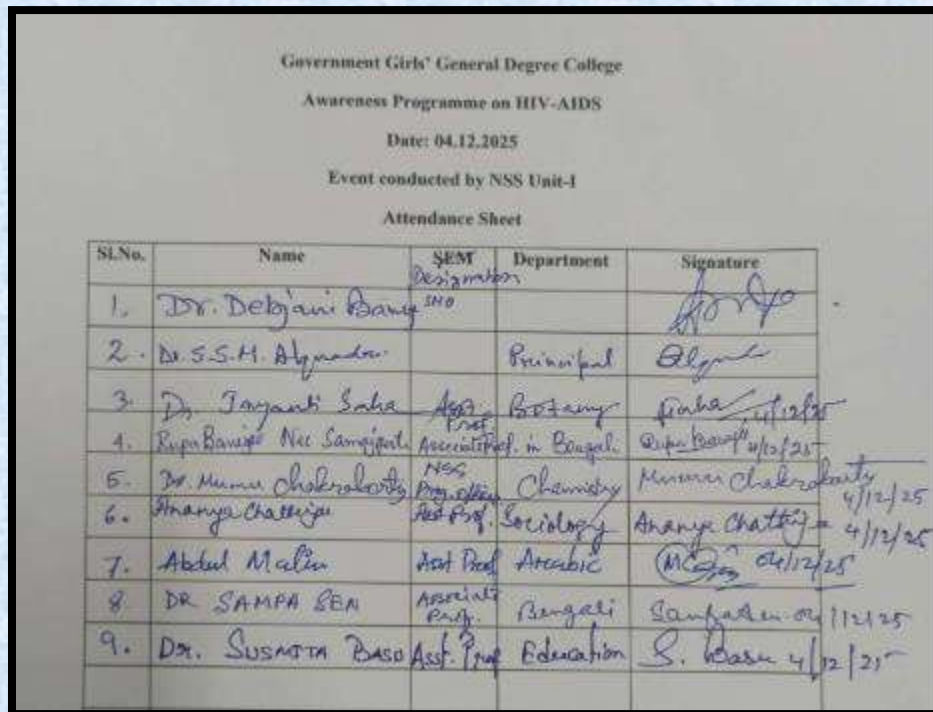 Government Girls' General Degree College
Awareness Programme on HIV-AIDS
Date: 04.12.2025
Event conducted by NSS Unit-I
Attendance Sheet
Sl.No. Name SEM Department Signature
Designation
1. Dr. Debjani SMO
2. Dr. S.S.M. Principal
3. Dr. Jayanti Saha Asst Prof. Botany Saha 4/12/25
4. Rupa Nee Associate Prof. in Bengali Rupa 4/12/25
5. Dr. Mumu Chakraborty NSS Prog. Officer Chemistry Mumu Chakraborty 4/12/25
6. Ananya Chatterjee Asst Prof. Sociology Ananya Chatterjee 4/12/25
7. Abdul Asst Prof Arabic 04/12/25
8. DR SAMPA SEN Associate Prof. Bengali Sampa Sen 04/12/25
9. Dr. SUSMITA BASU Asst. Prof Education S. Basu 4/12/25